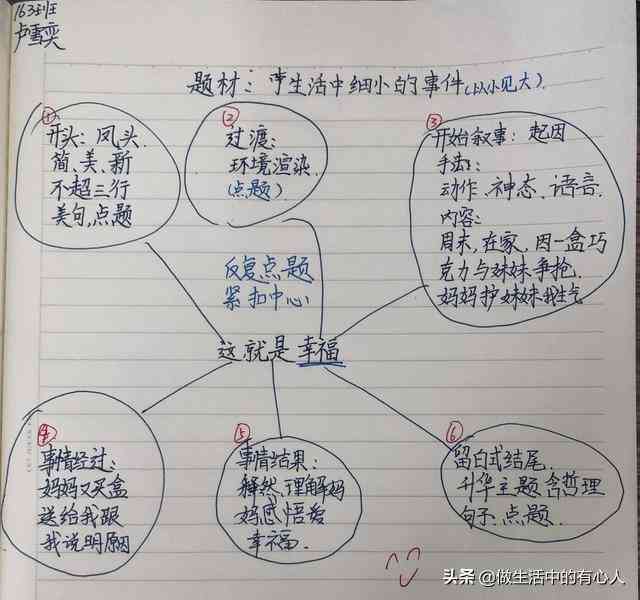 163班
卢雪奕
题材：生活中细小的事件(以小见大).
①
开头：凤头.
简、美、新
不超三行
美句,点题
②
过渡：
环境渲染
(点题)
③
开始叙事：起因
手法：
动作、神态、语言.
内容：
周末,在家,因一盒巧
克力与妹妹争抢,
妈妈护妹妹我生气
反复点题
紧扣中心
这就是幸福
④
事情经过：
妈妈又买盒
送给我跟
我说明原因
⑤
事情结果：
释然,理解妈
妈感悟爱
幸福.
⑥
留白式结尾.
升华主题 含哲理
句子、点题.
头条 @做生活中的有心人